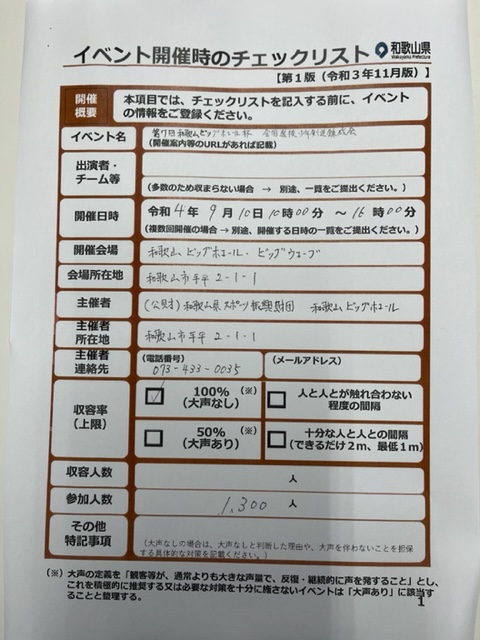 イベント開催時のチェックリスト 和歌山県
Wakayama Prefecture
【第1版（令和3年11月版）】
開催概要
本項目では、チェックリストを記入する前に、イベントの情報をご登録ください。
イベント名
第17回和歌山ビッグホエール杯 全国産後少年剣道錬成会
（開催案内等のURLがあれば記載）
出演者・チーム等
（多数のため収まらない場合 → 別途、一覧をご提出ください。）
開催日時
令和 4 年 9 月 10 日 10 時 00 分 ～ 16 時 00 分
（複数回開催の場合→別途、開催する日時の一覧をご提出ください。）
開催会場
和歌山ビッグホエール・ビッグウェーブ
会場所在地
和歌山市手平 2-1-1
主催者
(公財) 和歌山県スポーツ振興財団 和歌山ビッグホエール
主催者所在地
和歌山市手平 2-1-1
主催者連絡先
（電話番号）
073-433-0035
（メールアドレス）
収容率（上限）
100% （※）
（大声なし）
人と人とが触れ合わない程度の間隔
50% （※）
（大声あり）
十分な人と人との間隔
（できるだけ2m、最低1m）
収容人数
人
参加人数
1,300 人
その他特記事項
（大声なしの場合は、大声なしと判断した理由や、大声を伴わないことを担保
する具体的な対策を記載ください。）
（※）大声の定義を「観客等が、通常よりも大きな声量で、反復・継続的に声を発すること」とし、
これを積極的に推奨する又は必要な対策を十分に施さないイベントは「大声あり」に該当す
ることと整理する。
1